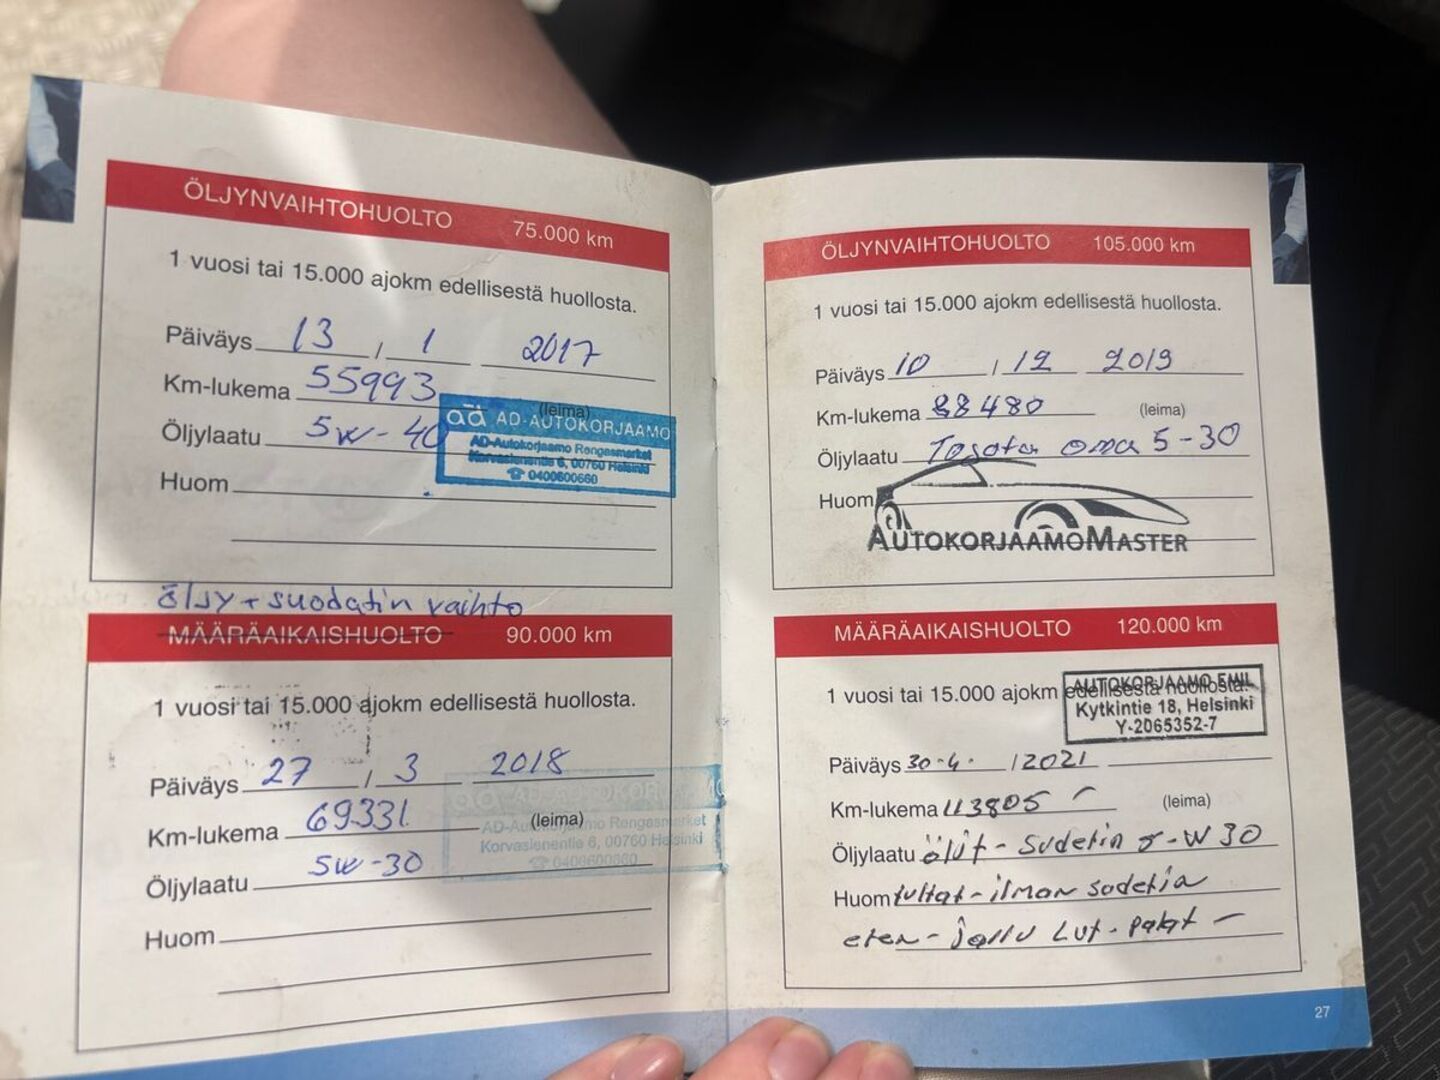 ÖLJYNVAIHTOHUOLTO 75.000 km
1 vuosi tai 15.000 ajokm edellisestä huollosta.
Päiväys 13 / 1 2017
Km-lukema 55993 (leima)
Öljylaatu 5W-40
aä AD-AUTOKORJAAMO
AD-Autokorjaamo Rengasmarket
Korvasienentie 6, 00760 Helsinki
☎ 0400600660
Huom
öljy + suodatin vaihto
MÄÄRÄAIKAISHUOLTO 90.000 km
1 vuosi tai 15.000 ajokm edellisestä huollosta.
Päiväys 27 / 3 2018
Km-lukema 69331 (leima)
AD-Autokorjaamo Rengasmarket
Korvasienentie 6, 00760 Helsinki
☎ 0400600660
Öljylaatu 5W-30
Huom
ÖLJYNVAIHTOHUOLTO 105.000 km
1 vuosi tai 15.000 ajokm edellisestä huollosta.
Päiväys 10 / 12 2019
Km-lukema 88480 (leima)
Öljylaatu oma 5-30
Huom
AUTOKORJAAMOMASTER
MÄÄRÄAIKAISHUOLTO 120.000 km
1 vuosi tai 15.000 ajokm edellisestä huollosta.
AUTOKORJAAMO EMIL
Kytkintie 18, Helsinki
Y-2065352-7
Päiväys 30.4. / 2021
Km-lukema 113805 (leima)
Öljylaatu - W30
Huom - ilman
27